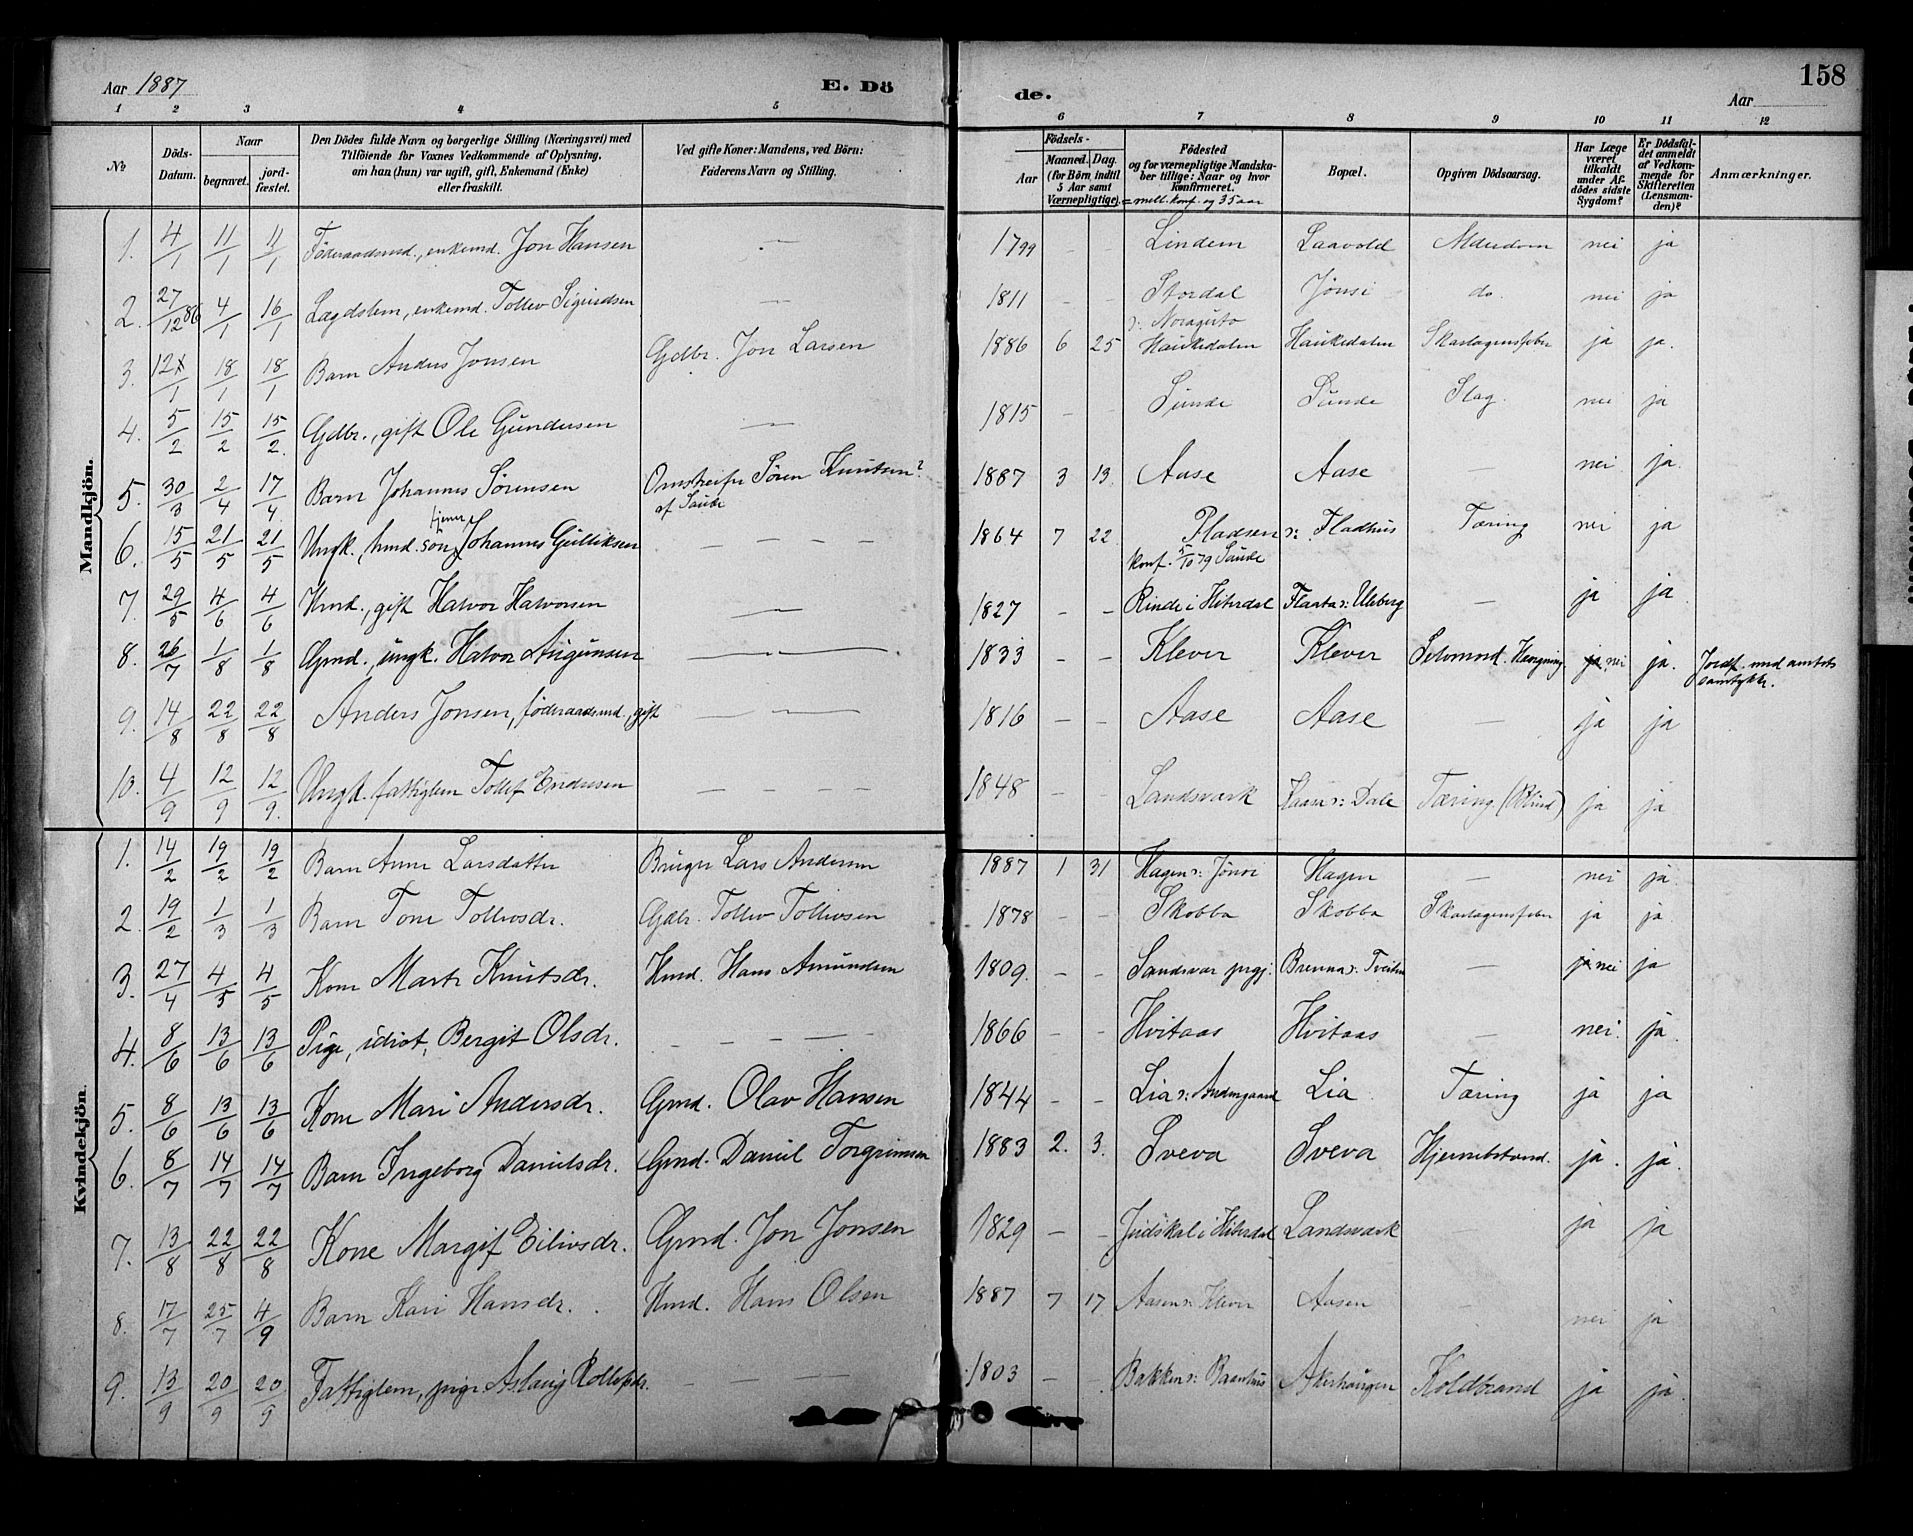 Aar 1887 E. Dö de. Aar 158
1 2 3 4 5 6 7 8 9 10 11 12
No
Döds-Datum.
Naar
begravet. jord-fæstet.
Den Dödes fulde Navn og borgerlige Stilling (Næringsvei) med
Tilföiende for Voxnes Vedkommende af Oplysning,
om han (hun) var ugift, gift, Enkemand (Enke)
eller fraskilt.
Ved gifte Koner: Mandens, ved Börn:
Faderens Navn og Stilling.
Födsels-
Aar Maaned. Dag.
(for Börn indtil
5 Aar samt
Værnepligtige). = mell. konf. og 35 aar
Födested
og for værnepligtige Mandska-
ber tillige: Naar og hvor
Konfirmeret.
Bopæl.
Opgiven Dödsaarsag.
Har Læge
været
tilkaldt
under Af-
dödes sidste
Sygdom?
Er Dödsfal-
det anmeldt
af Vedkom-
mende for
Skifteretten
(Lensman-
den)?
Anmærkninger.
Mandkjön.
1. 4/1 11/1 11/1 Föderaadsmd., enkemd. Jon Hansen — 1799 - - Lindem Laavold Alderdom nei ja
2. 27/12 86 4/1 16/1 Lægdslem, enkemd. Tollev Sigurdsen — 1811 - - Stordal Jönsi do. nei ja
3. 12/1 18/1 18/1 Barn Anders Jonsen Gdbr. Jon Larsen 1886 6 25 Haukedalen Haukedalen Skarlagensfeber ja ja.
4. 5/2 15/2 15/2. Gdbr., gift Ole Gundersen — 1815 - - Sunde Sunde Slag. nei ja
5. 30/3 2/4 17/4 Barn Johannes Sörensen Omstreifer Sören Knutsen? af Saude 1887 3 13. Aase Aase — nei ja.
6. 15/5 21/5 21/5 Ungk., hmd. sön, tjener Johannes Gulliksen — — — — 1864 7 22 Pladsen ɔ: Fladhus Tæring nei ja
konf. 5/10 79 Saude
7. 29/5 4/6 4/6 Hmd., gift Halvor Halvorsen — 1827 - - Rinde i Hiterdal Flaata ɔ: Uleberg — ja ja
8. 26/7 1/8 1/8 Gmd., ungk. Halvor Augunsen — 1833 - - Klever Klever Selvmord. Hængning ja nei ja. Jordf. med amtets
samtykke.
9. 14/8 22/8 22/8 Anders Jonsen, föderaadsmd., gift — — — 1816 - - Aase Aase — ja ja
10. 4/9 12/9 12/9. Ungk. fattiglem Tollef Endresen — — — — 1848 - Landsvark Kaasa ɔ: Dale Tæring. (Blind) ja ja
Kvindekjön.
1. 14/2 19/2 19/2 Barn Anne Larsdatter Bruger Lars Andersen 1887 1 31 Hagen ɔ: Jönsi Hagen — nei ja.
2. 19/2 1/3 1/3 Barn Tone Tollevsdr. Gdbr. Tollev Tollevsen 1878 - - Skobba Skobba Skarlagensfeber ja ja.
3. 27/4 4/5 4/5 Kone Marte Knutsdr. Hmd. Hans Amundsen 1809. - - Sandsvær prgj. Brenna ɔ: — ja nei ja
4. 8/6 13/6 13/6 Pige, idiot, Bergit Olsdr. — — — — 1866 - - Hvitaas Hvitaas — nei. ja.
5. 8/6 13/6 13/6 Kone Mari Andersdr. Gmd. Olav Hansen 1844 - - Lia ɔ: Lia Tæring ja ja
6. 8/7 14/7 14/7 Barn Ingeborg Danielsdr. Gmd. Daniel Torgrimsen 1883 2. 3. Sveva Sveva Hjernebetænd. ja. ja.
7. 13/8 22/8 22/8 Kone Margit Eilivsdr. Gmd. Jon Jonsen 1829 - - i Hiterdal Landsvark ja ja
8. 17/7 25/7 4/9 Barn Kari Hansdr. Hmd. Hans Olsen 1887 7 17 Aasen ɔ: Klever Aasen — nei ja
9. 13/9 20/9 20/9 Fattiglem, pige Aslaug — — — — 1803 - - Bakken ɔ: Akerhaugen Koldbrand ja ja.